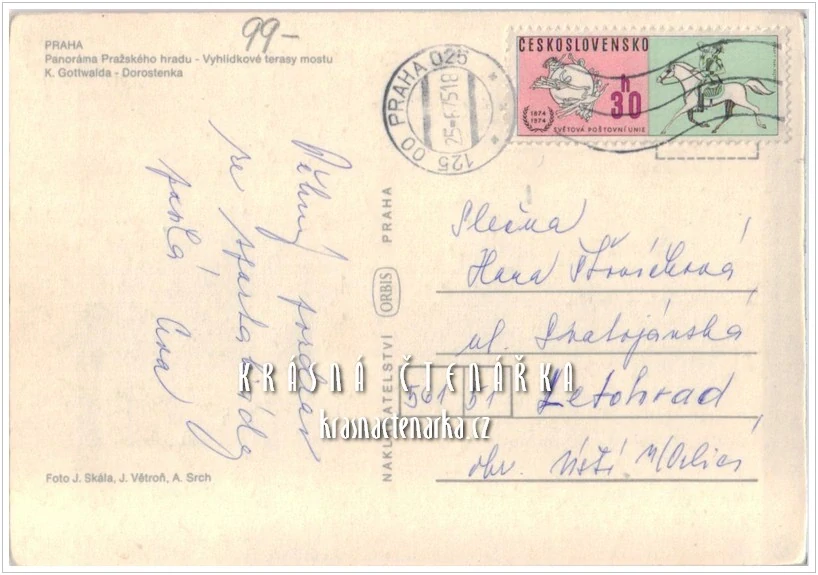 99-
PRAHA
Panoráma Pražského hradu - Vyhlídkové terasy mostu
K. Gottwalda - Dorostenka
PRAHA 025
25.-6.75-18
125 00
ČESKOSLOVENSKO
h
30
1874
1974
SVĚTOVÁ POŠTOVNÍ UNIE
Pěkný pozdrav
ze spartakiády
posílá
NAKLADATELSTVÍ ORBIS PRAHA
Slečna
Hana
ul. Svatojánská
561 51 Letohrad
okr. Ústí n/Orlicí
KRÁSNÁ ČTENÁŘKA
krasnactenarka.cz
Foto J. Skála, J. Větroň, A. Srch